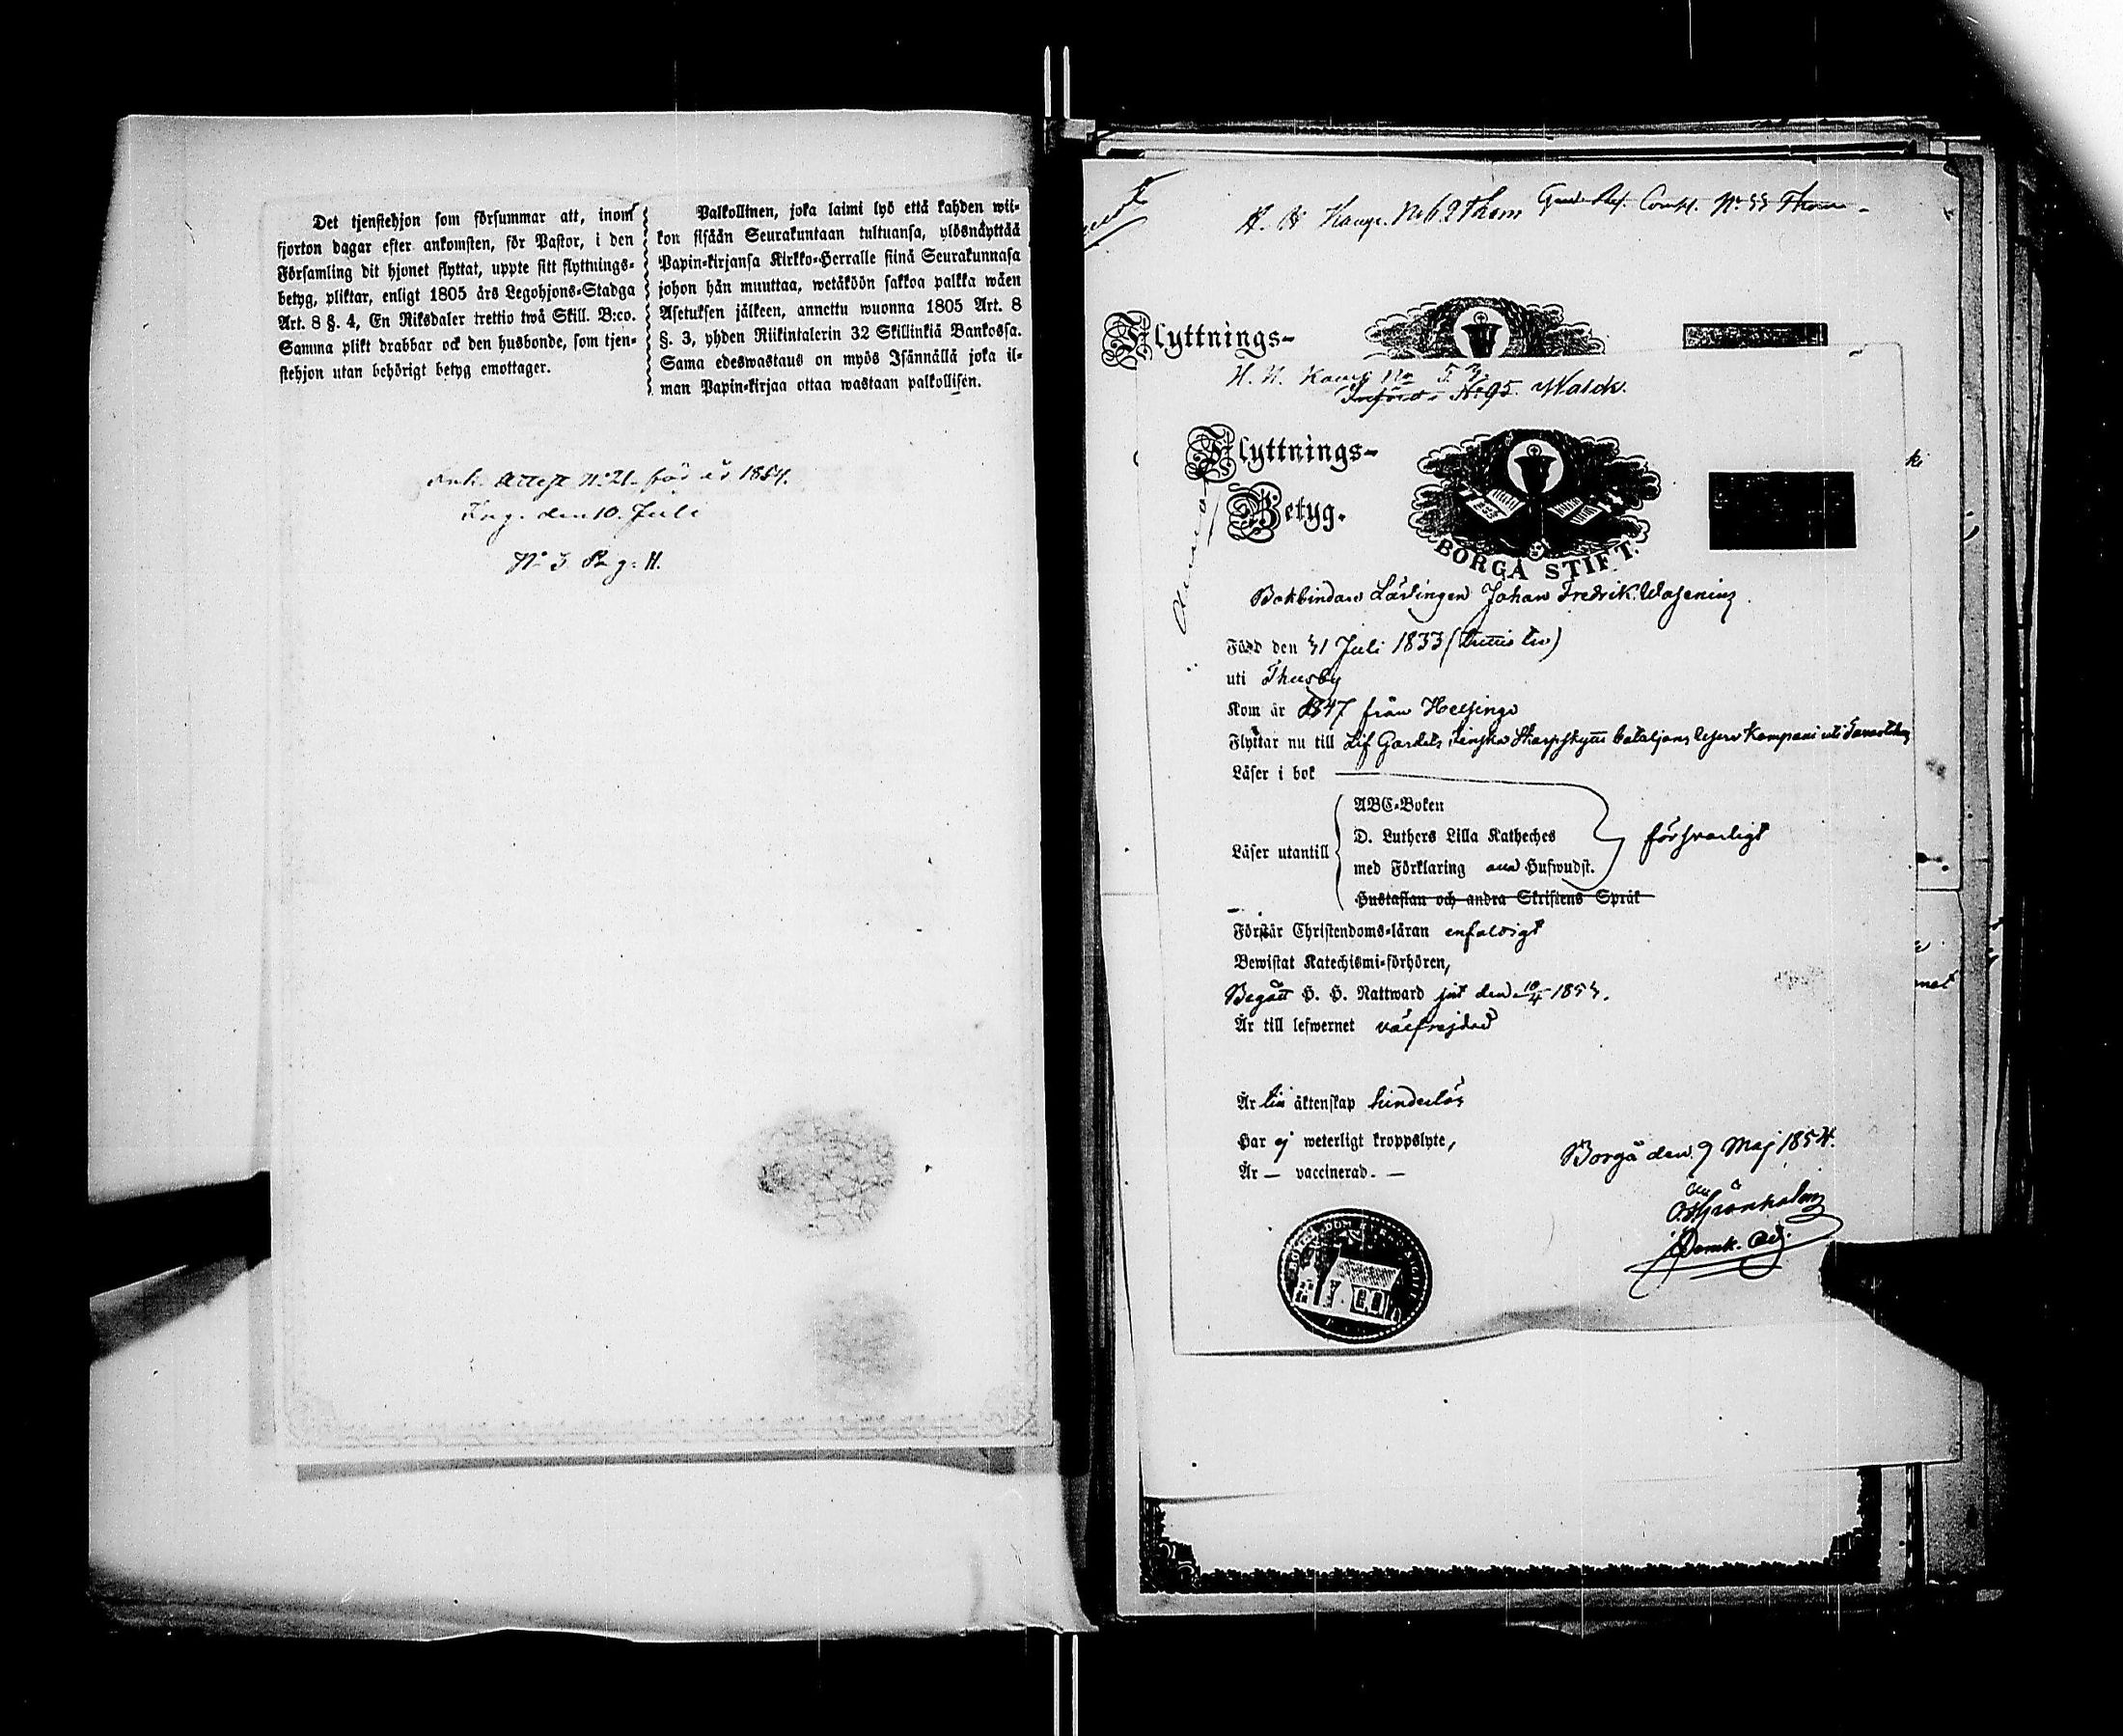 Det tjenstehjon som försummar att, inom
fjorton dagar efter ankomsten, för Pastor, i den
Församling dit hjonet flyttat, uppte sitt flyttnings-
betyg, pliktar, enligt 1805 års Legohjons-Stadga
Art. 8 §. 4, En Riksdaler trettio twå Skill. B:co.
Samma plikt drabbar ock den husbonde, som tjen-
stehjon utan behörigt betyg emottager.
Palkollinen, joka laimi lyö että kahden wii-
kon sisään Seurakuntaan tultuansa, ylösnäyttää
Papin-kirjansa Kirkko-Herralle siinä Seurakunnasa
johon hän muuttaa, wetäköön sakkoa palkka wäen
Asetuksen jälkeen, annettu wuonna 1805 Art. 8
§. 3, yhden Riikintalerin 32 Skillinkiä Bankossa.
Sama edeswastaus on myös Isännällä joka il-
man Papin-kirjaa ottaa wastaan palkollisen.
Ank. Attest N:o 21. för år 1854.
Ing. den 10. Juli
N:o 3 Pag: H.
N:o 62 Thom
Flyttnings-
N:o 95. Walck.
Flyttnings-
Betyg.
BORGÅ STIFT.
Bokbindare Lärlingen Johan Fredrik Wasenius
Född den 31 Juli 1833 (trettio tre)
uti Thusby
Kom år 1847 från Helsinge
Flyttar nu till Lif Gardets Finska Skarpskytte bataljons reserv Kompani uti Tavastehus
Läser i bok
Läser utantill
ABC-Boken
D. Luthers Lilla Katheches
med Förklaring alla Hufwudst.
Hustaflan och andra Skriftens Språk
försvarligt
Förstår Christendoms-läran enfaldigt
Bewistat Katechismi-förhören,
Begått H. H. Nattward sist den 10/4 1854.
Är till lefwernet välfrejdad
Är till äktenskap hinderlös
Har ej weterligt kroppslyte,
Är — vaccinerad. —
Borgå den 9 Maj 1854.
Grönholm
Domk. Adj.